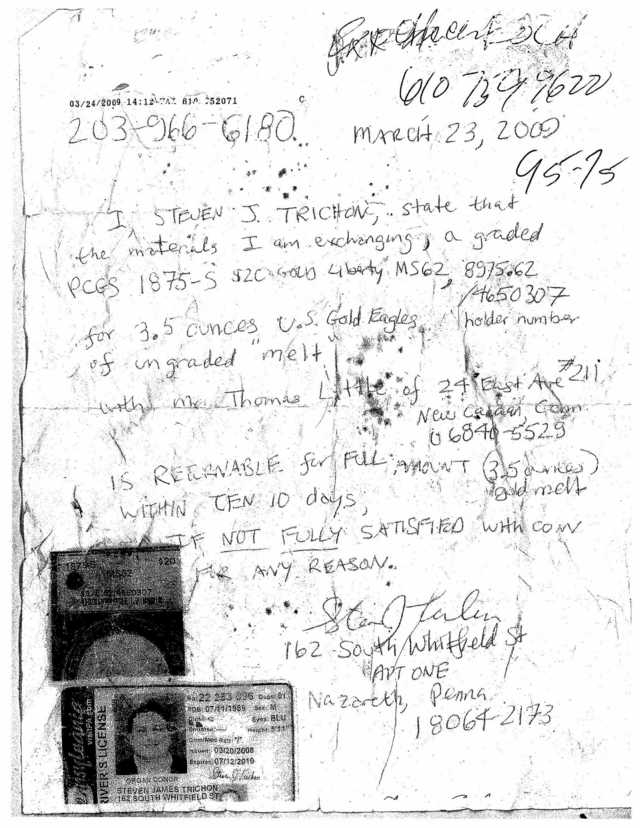 610 759 9622
03/24/2009 14:12 FAX 610 252071
203-966-6180
MARCH 23, 2009
95-75
I, STEVEN J. TRICHON, state that
the materials I am exchanging, a graded
PCGS 1875-S $20 GOLD Liberty MS62 8975.62
/4650307
holder number
for 3.5 ounces U.S. Gold Eagles
of ungraded "melt"
with Mr. Thomas Little of 24 East Ave #211
New Canaan, Conn.
06840-5529
IS RETURNABLE for FULL AMOUNT (3.5 ounces)
gold melt
WITHIN TEN 10 days,
IF NOT FULLY SATISFIED with coin
FOR ANY REASON.
162 South Whitfield St
APT ONE
Nazareth, Penna.
18064-2173
$20
MS62
DRIVER'S LICENSE
Sex: M
Eyes: BLU
Issued: 03/20/2008
Expires: 07/12/2010
ORGAN DONOR
STEVEN JAMES TRICHON
162 SOUTH WHITFIELD ST